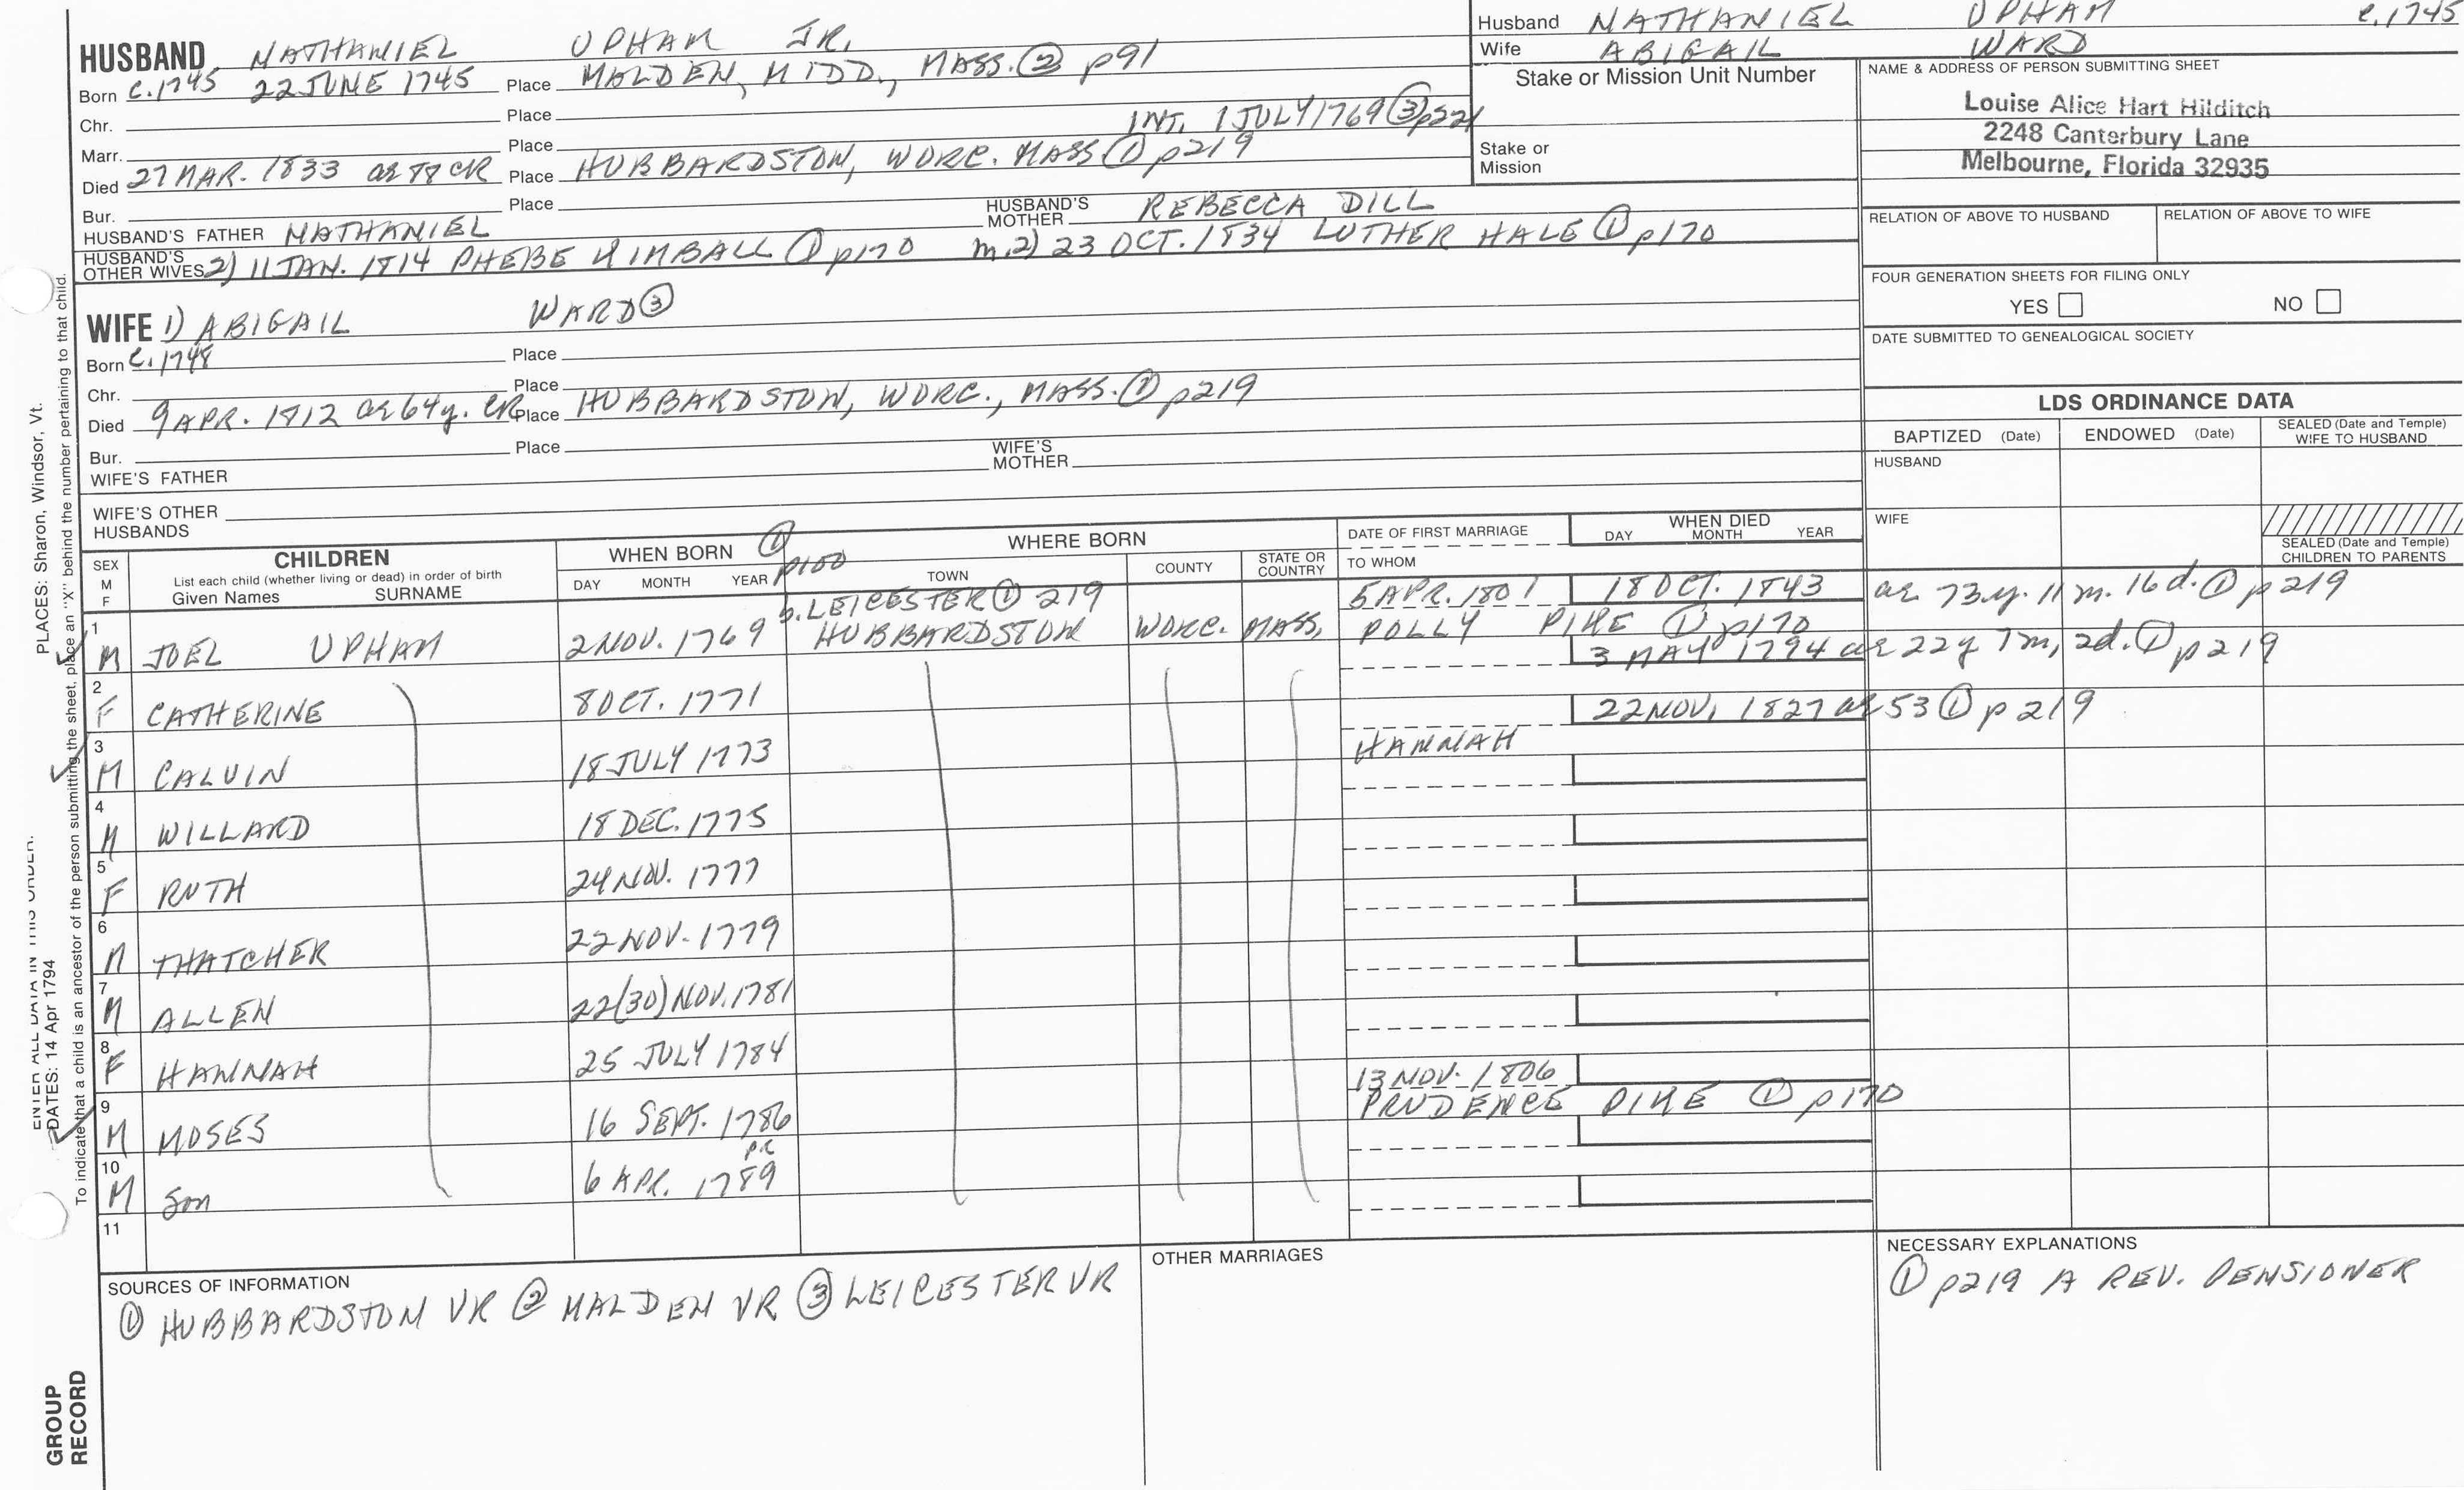 Husband NATHANIEL UPHAM c.1745
Wife ABIGAIL WARD
HUSBAND NATHANIEL UPHAM JR.
Born c.1745 22 JUNE 1745 Place MALDEN, MIDD., MASS. ② p91
Chr. Place
INT. 1 JULY 1769 ③ p221
Marr. Place
Died 27 MAR. 1833 ae 88 CR Place HUBBARDSTON, WORC. MASS ① p219
Bur. Place
HUSBAND'S FATHER NATHANIEL HUSBAND'S MOTHER REBECCA DILL
HUSBAND'S OTHER WIVES 2) 11 JAN. 1814 PHEBE KIMBALL ① p170 m.2) 23 OCT. 1834 LUTHER HALE ① p170
WIFE 1) ABIGAIL WARD ③
Born c.1748 Place
Chr. Place
Died 9 APR. 1812 ae 64y. CR Place HUBBARDSTON, WORC., MASS. ① p219
Bur. Place
WIFE'S FATHER WIFE'S MOTHER
WIFE'S OTHER HUSBANDS
Stake or Mission Unit Number
Stake or Mission
NAME & ADDRESS OF PERSON SUBMITTING SHEET
Louise Alice Hart Hilditch
2248 Canterbury Lane
Melbourne, Florida 32935
RELATION OF ABOVE TO HUSBAND RELATION OF ABOVE TO WIFE
FOUR GENERATION SHEETS FOR FILING ONLY
YES NO
DATE SUBMITTED TO GENEALOGICAL SOCIETY
LDS ORDINANCE DATA
BAPTIZED (Date) ENDOWED (Date) SEALED (Date and Temple) WIFE TO HUSBAND
HUSBAND
WIFE
SEALED (Date and Temple) CHILDREN TO PARENTS
SEX M F
CHILDREN
List each child (whether living or dead) in order of birth
Given Names SURNAME
WHEN BORN ① p100
DAY MONTH YEAR
WHERE BORN
TOWN COUNTY STATE OR COUNTRY
DATE OF FIRST MARRIAGE
TO WHOM
WHEN DIED
DAY MONTH YEAR
b. LEICESTER ① 219 5 APR. 1801 18 OCT. 1843 ae 73y. 11m. 16d. ① p219
1 M JOEL UPHAM 2 NOV. 1769 HUBBARDSTON WORC. MASS. POLLY PIKE ① p170
3 MAY 1794 ae 22y 7m, 2d. ① p219
2 F CATHERINE 8 OCT. 1771
22 NOV. 1827 ae 53 ① p219
3 M CALVIN 18 JULY 1773 HANNAH
4 M WILLARD 18 DEC. 1775
5 F RUTH 24 NOV. 1777
6 M THATCHER 22 NOV. 1779
7 M ALLEN 22(30) NOV. 1781
8 F HANNAH 25 JULY 1784
13 NOV. 1806
9 M MOSES 16 SEPT. 1786 PRUDENCE PIKE ① p170
PR
10 M Son 6 APR. 1789
11
SOURCES OF INFORMATION
① HUBBARDSTON VR ② MALDEN VR ③ LEICESTER VR
OTHER MARRIAGES
NECESSARY EXPLANATIONS
① p219 A REV. PENSIONER
PLACES: Sharon, Windsor, Vt.
ENTER ALL DATA IN THIS ORDER:
DATES: 14 Apr 1794
To indicate that a child is an ancestor of the person submitting the sheet, place an "X" behind the number pertaining to that child.
GROUP
RECORD